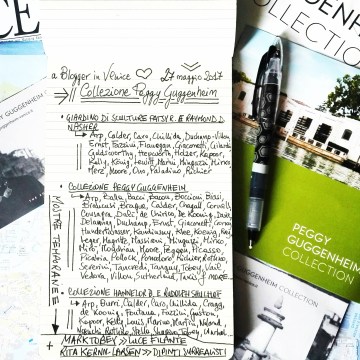 CE
a Blogger in Venice ♡ 27 maggio 2017
Collezione Peggy Guggenheim
• GIARDINO DI SCULTURE PATSY R. E RAYMOND D. NASHER
Arp, Calder, Caro, Chillida, Duchamp-Villon,
Ernst, Fazzini, Flanagan, Giacometti, Gilardi
Goldsworthy, Hepworth, Holzer, Kapoor,
Kelly, König, Lewitt, Marini, Minguzzi, Mirko
Merz, Moore, Ono, Paladino, Richier
• COLLEZIONE PEGGY GUGGENHEIM
Arp, Balla, Bacci, Bacon, Boccioni,
Brancusi, Braque, Calder, Chagall, Cornell,
Consagra, Dalí, de Chirico, De Kooning,
Delaunay, Duchamp, Ernst, Giacometti,
Hundertwasser, Kandinsky, Klee, Kooning,
Leger, Magritte, Massimi, Minguzzi, Mirko
Miró, Modrian, Moore, Picasso,
Picabia, Pollock, Richier, Rothko
Severini, Tancredi, Tanguy, Tobey, Vail
Vedova, Villon, Sutherland, & more
MOSTRE TEMPORANEE
• COLLEZIONE HANNELORE B. E RUDOLPH SCHULHOF
Arp, Burri, Calder, Caro, Chillida, Cragg,
de Kooning, Fontana, Fuzzini, Guston,
Kapoor, Kelly, Louis, Marino, Martin, Noland,
+ MARK TOBEY >> LUCE FILANTE
RITA KERNN-LARSEN >> DIPINTI SURREALISTI
PEGGY GUGGENHEIM
COLLECTION
PEGGY
GUGGENHEIM
COLLECTION
GUGGENHEIM COLLECTION